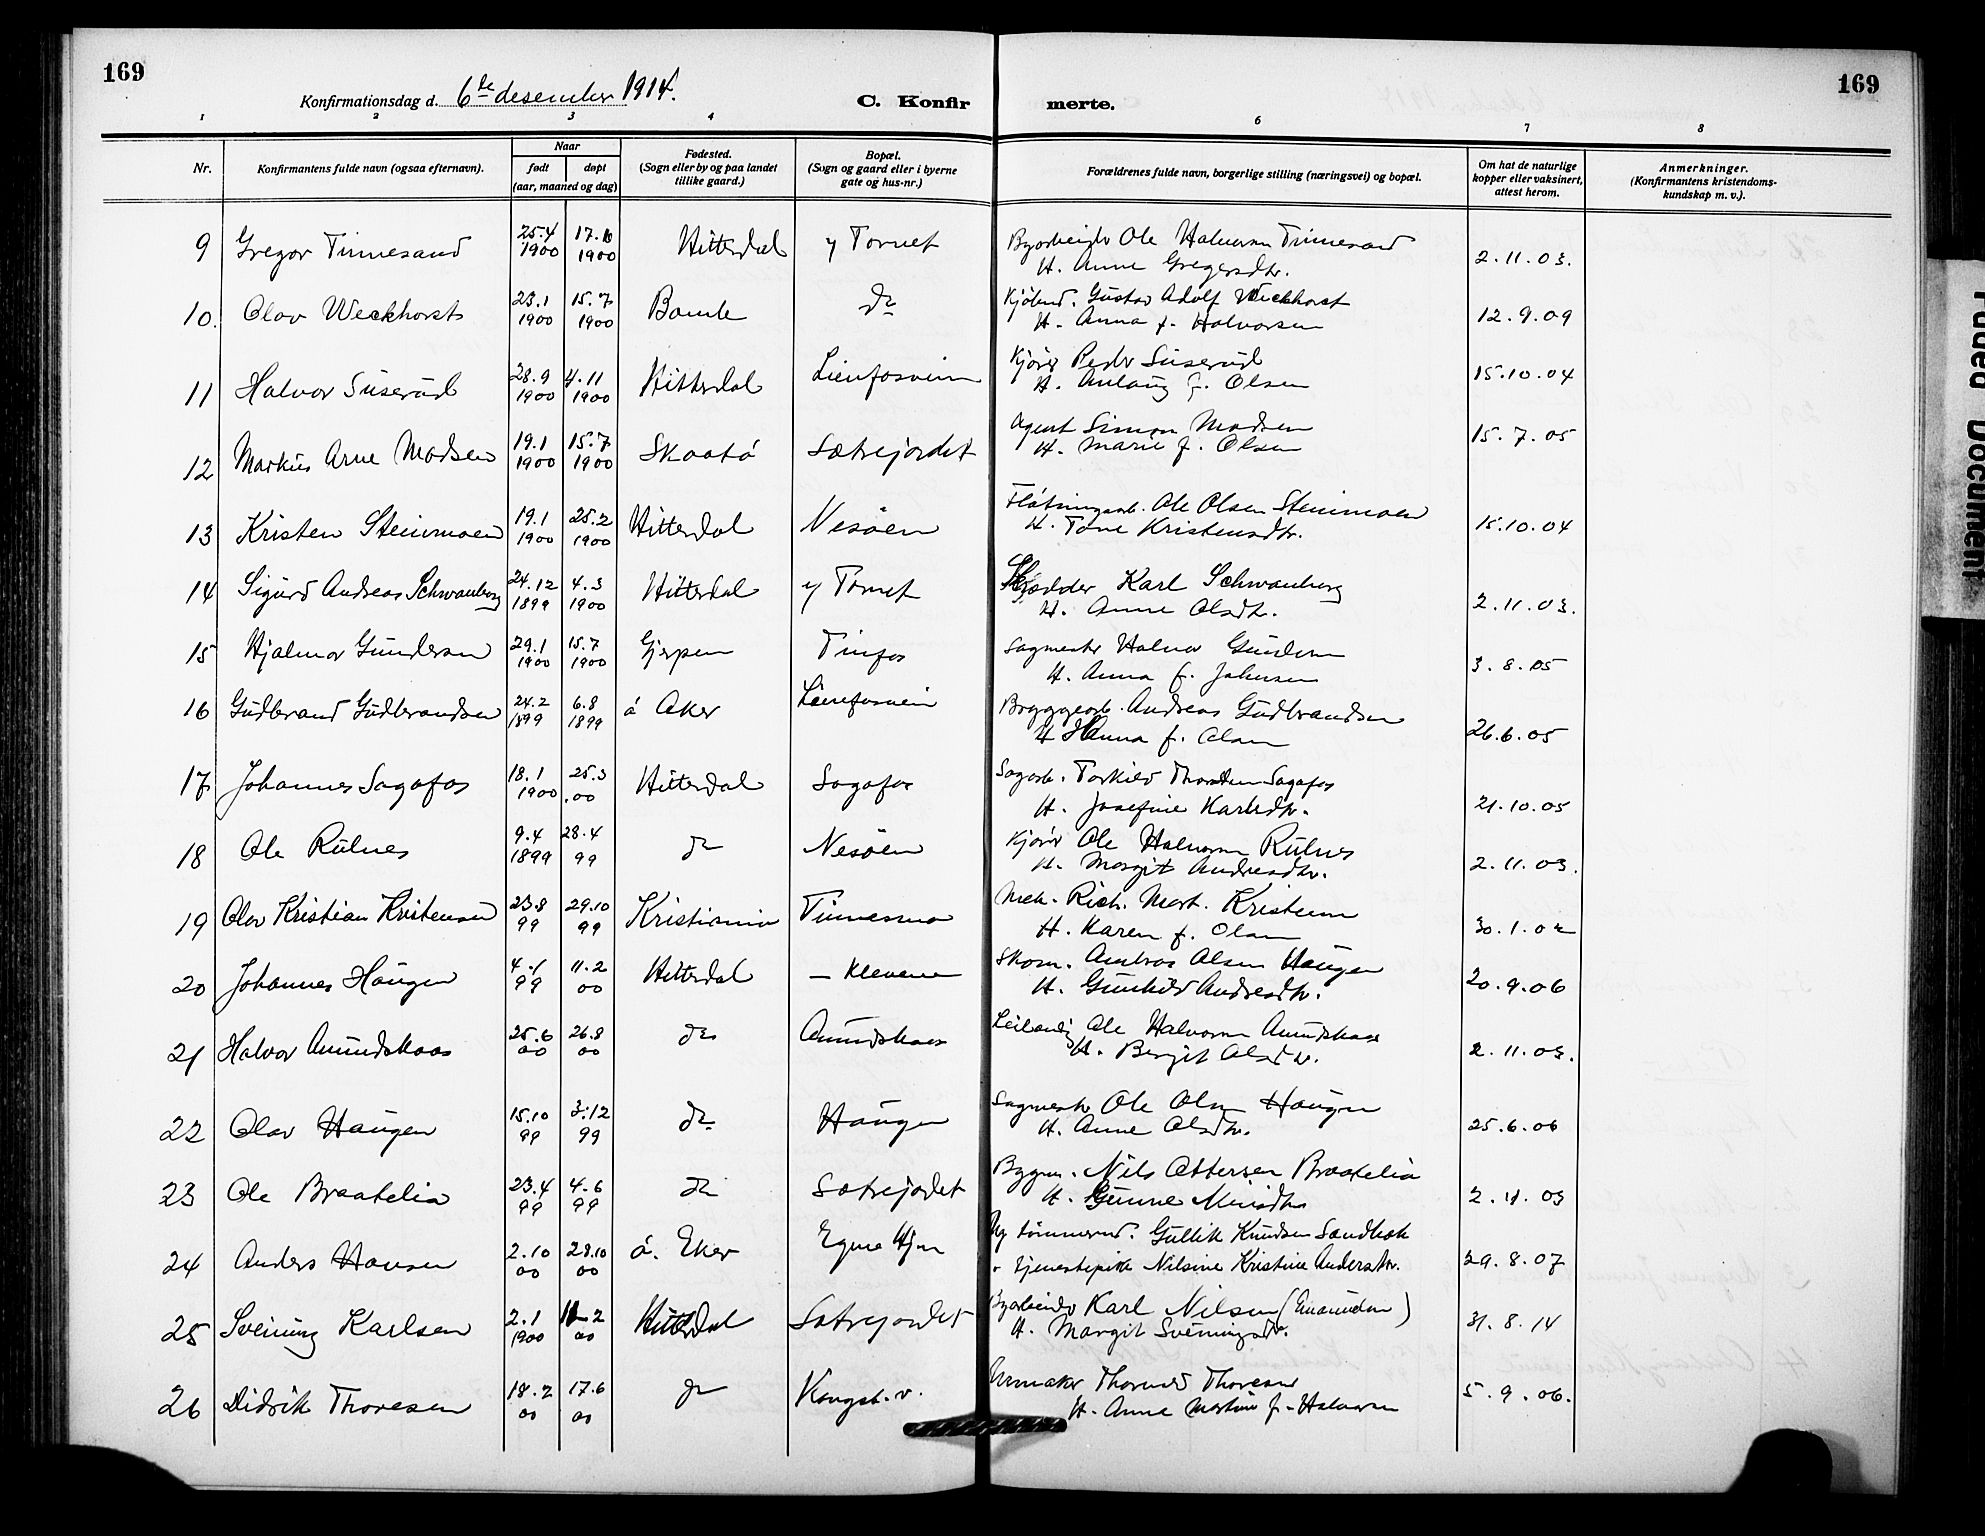 169
Konfirmationsdag d. 6te desember 1914.
C. Konfir merte.
169
1 2 3 4 6 7 8
Nr.
Konfirmantens fulde navn (ogsaa efternavn).
Naar
født døpt
(aar, maaned og dag)
Fødested.
(Sogn eller by og paa landet
tillike gaard.)
Bopæl.
(Sogn og gaard eller i byerne
gate og hus-nr.)
Forældrenes fulde navn, borgerlige stilling (næringsvei) og bopæl.
Om hat de naturlige
kopper eller vaksinert,
attest herom.
Anmerkninger.
(Konfirmantens kristendoms-
kundskap m. v.).
9 Gregor Tinnesand 25.4 1900 17.6 1900 Hitterdal y Tornet Byarbeider Ole Halvorsen Tinnesand
H. Anne Gregersdtr. 2.11.03.
10. Olav Weckhorst 23.1 1900 15.7 1900 Bamle do Kjøbmd. Gustav Adolf Weckhorst
H. Anna f. Halvorsen 12.9.09
11 Halvor Suserud 28.9 1900 4.11 1900 Hitterdal Lienfosveien Kjører Peder Suserud
H. Aslaug f. Olsen 15.10.04
12 Markus Arne Madsen 19.1 1900 15.7 1900 Skaatø Sætrejordet Agent Simon Madsen
H. Marie f. Olsen 15.7.05
13 Kristen Steinmoen 19.1 1900 25.2 1900 Hitterdal Nesøen Fløtningsarb. Ole Olsen Steinmoen
H. Tone Kristensdtr. 15.10.04
14 Sigurd Andreas Schwanberg 24.12 1899 4.3 1900 Hitterdal y Tornet Skrædder Karl Schwanberg
H. Anne Olsdtr. 2.11.03.
15 Hjalmar Gundersen 29.1 1900 15.7 1900 Gjerpen Tinfos Sagmester Halvor Gundersen
H. Anna f. Johnsen 3.8.05
16 Gudbrand Gudbrandsen 24.2 1899 6.8 1899 ø Aker Lienfosveien Bryggearb. Andreas Gudbrandsen
H Hanna f. Olsen 26.6.05
17 Johannes Sagafos 18.1 1900 25.3 .00 Hitterdal Sagafos Sagarb. Torkild Thorsten Sagafos
H. Josefine Karlsdtr. 21.10.05
18 Ole Rulnes 9.4 1899 28.4 99 do Nesøen Kjører Ole Halvorsen Rulnes
H. Margit Andresdtr. 2.11.03.
19 Olav Kristian Kristensen 23.8 99 29.10 99 Kristiania Tinnesmo Mek. Rich. Mart. Kristensen
H. Karen f. Olsen 30.1.02
20 Johannes Haugen 4.1 99 11.2 00 Hitterdal — Klevene Skom. Ambros Olsen Haugen
H. Gunhild Andresdtr. 20.9.06
21 Halvor Amundskaas 25.6 00 26.8 00 do Amundskaas Leilændig Ole Halvorsen Amundskaas
H. Bergit Olsdtr. 2.11.03.
22 Olav Haugen 15.10 99 3.12 99 do Haugen Sagmester Ole Olsen Haugen
H. Anne Olsdtr. 25.6.06
23 Ole Braatelia 23.4 99 4.6 99 do Sætrejordet Bygm. Nils Ottersen Braatelia
H. Gunne 2.11.03
24 Anders Hansen 2.10 00 28.10 00 ø. Eker Egne Hjem Ug tømmermd. Gullik Knudsen Sandbæk
Tjenestepike Nilsine Kristine Andersdtr. 29.8.07
25 Sveinung Karlsen 2.1 1900 11-2 00 Hitterdal Sætrejordet Byarbeider Karl Nilsen
H. Margit Sveinungsdtr. 31.8.14
26 Didrik Thoresen 18.2 00 17.6 00 do Kongsb. v. Urmaker Thorvald Thoresen
H. Anne Martine f. Halvorsen 5.9.06.
Faded Document